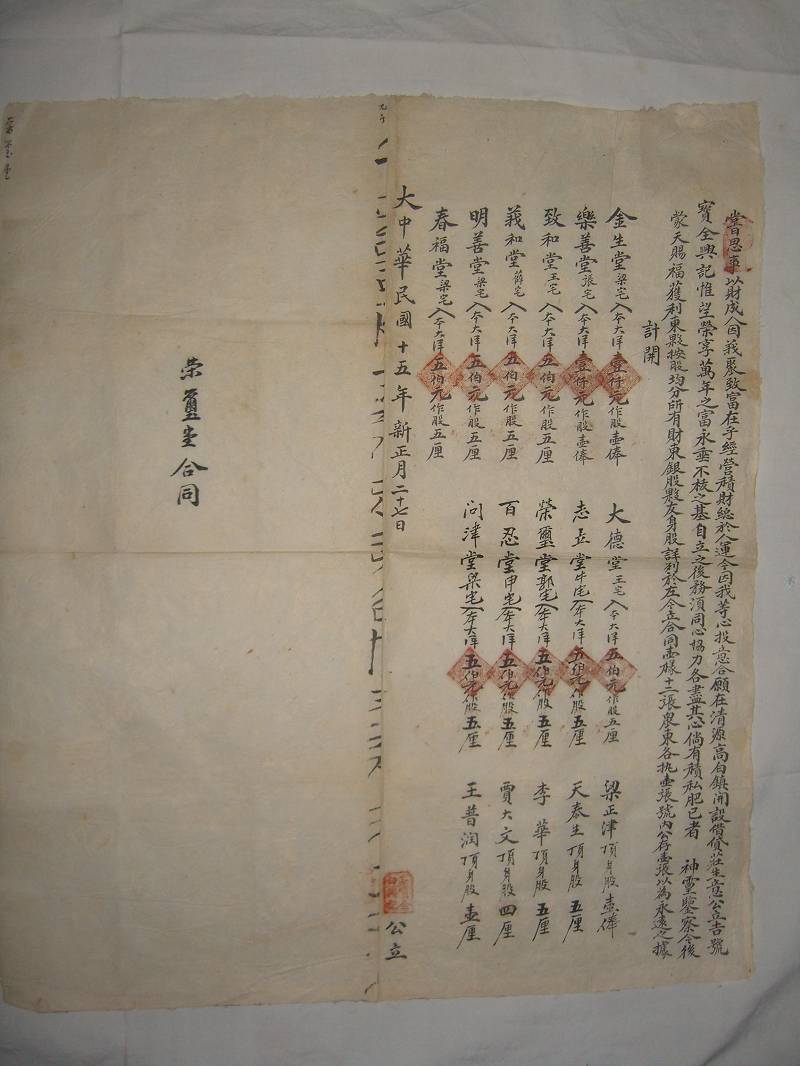 嘗思事以財成人因義聚致富在乎經營積財総於人運今因我等心投意合願在清源高白鎮開設借貸莊生意公立吉號
寶全興記惟望榮享萬年之富永垂不核之基自立之後務須同心協力各盡其心倘有積私肥己者 神靈鑒察今後
蒙天賜福獲利東夥按股均分所有財東銀股夥友身股詳列於左今立合同壹樣十二張眾東各执壹張號內公存壹張以為永遠之據
計開
金生堂梁宅入本大洋壹仟元作股壹俸
樂善堂張宅入本大洋壹仟元作股壹俸
致和堂王宅入本大洋五伯元作股五厘
義和堂薛宅入本大洋五伯元作股五厘
明善堂梁宅入本大洋五伯元作股五厘
春福堂梁宅入本大洋五伯元作股五厘
大德堂王宅入本大洋五伯元作股五厘
志岳堂牛宅入本大洋五伯元作股五厘
榮璽堂郭宅入本大洋五伯元作股五厘
百忍堂申宅入本大洋五伯元作股五厘
问津堂梁宅入本大洋五伯元作股五厘
梁正津頂身股壹俸
天泰生頂身股五厘
李華頂身股五厘
賈大文頂身股四厘
王普润頂身股壹厘
大中華民國十五年新正月二十七日
公立
荣璽堂合同